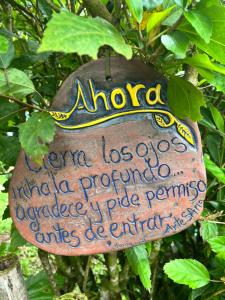 Ahora
Cierra los ojos
inhala profundo...
agradece y pide permiso
antes de entrar
Arte Sara